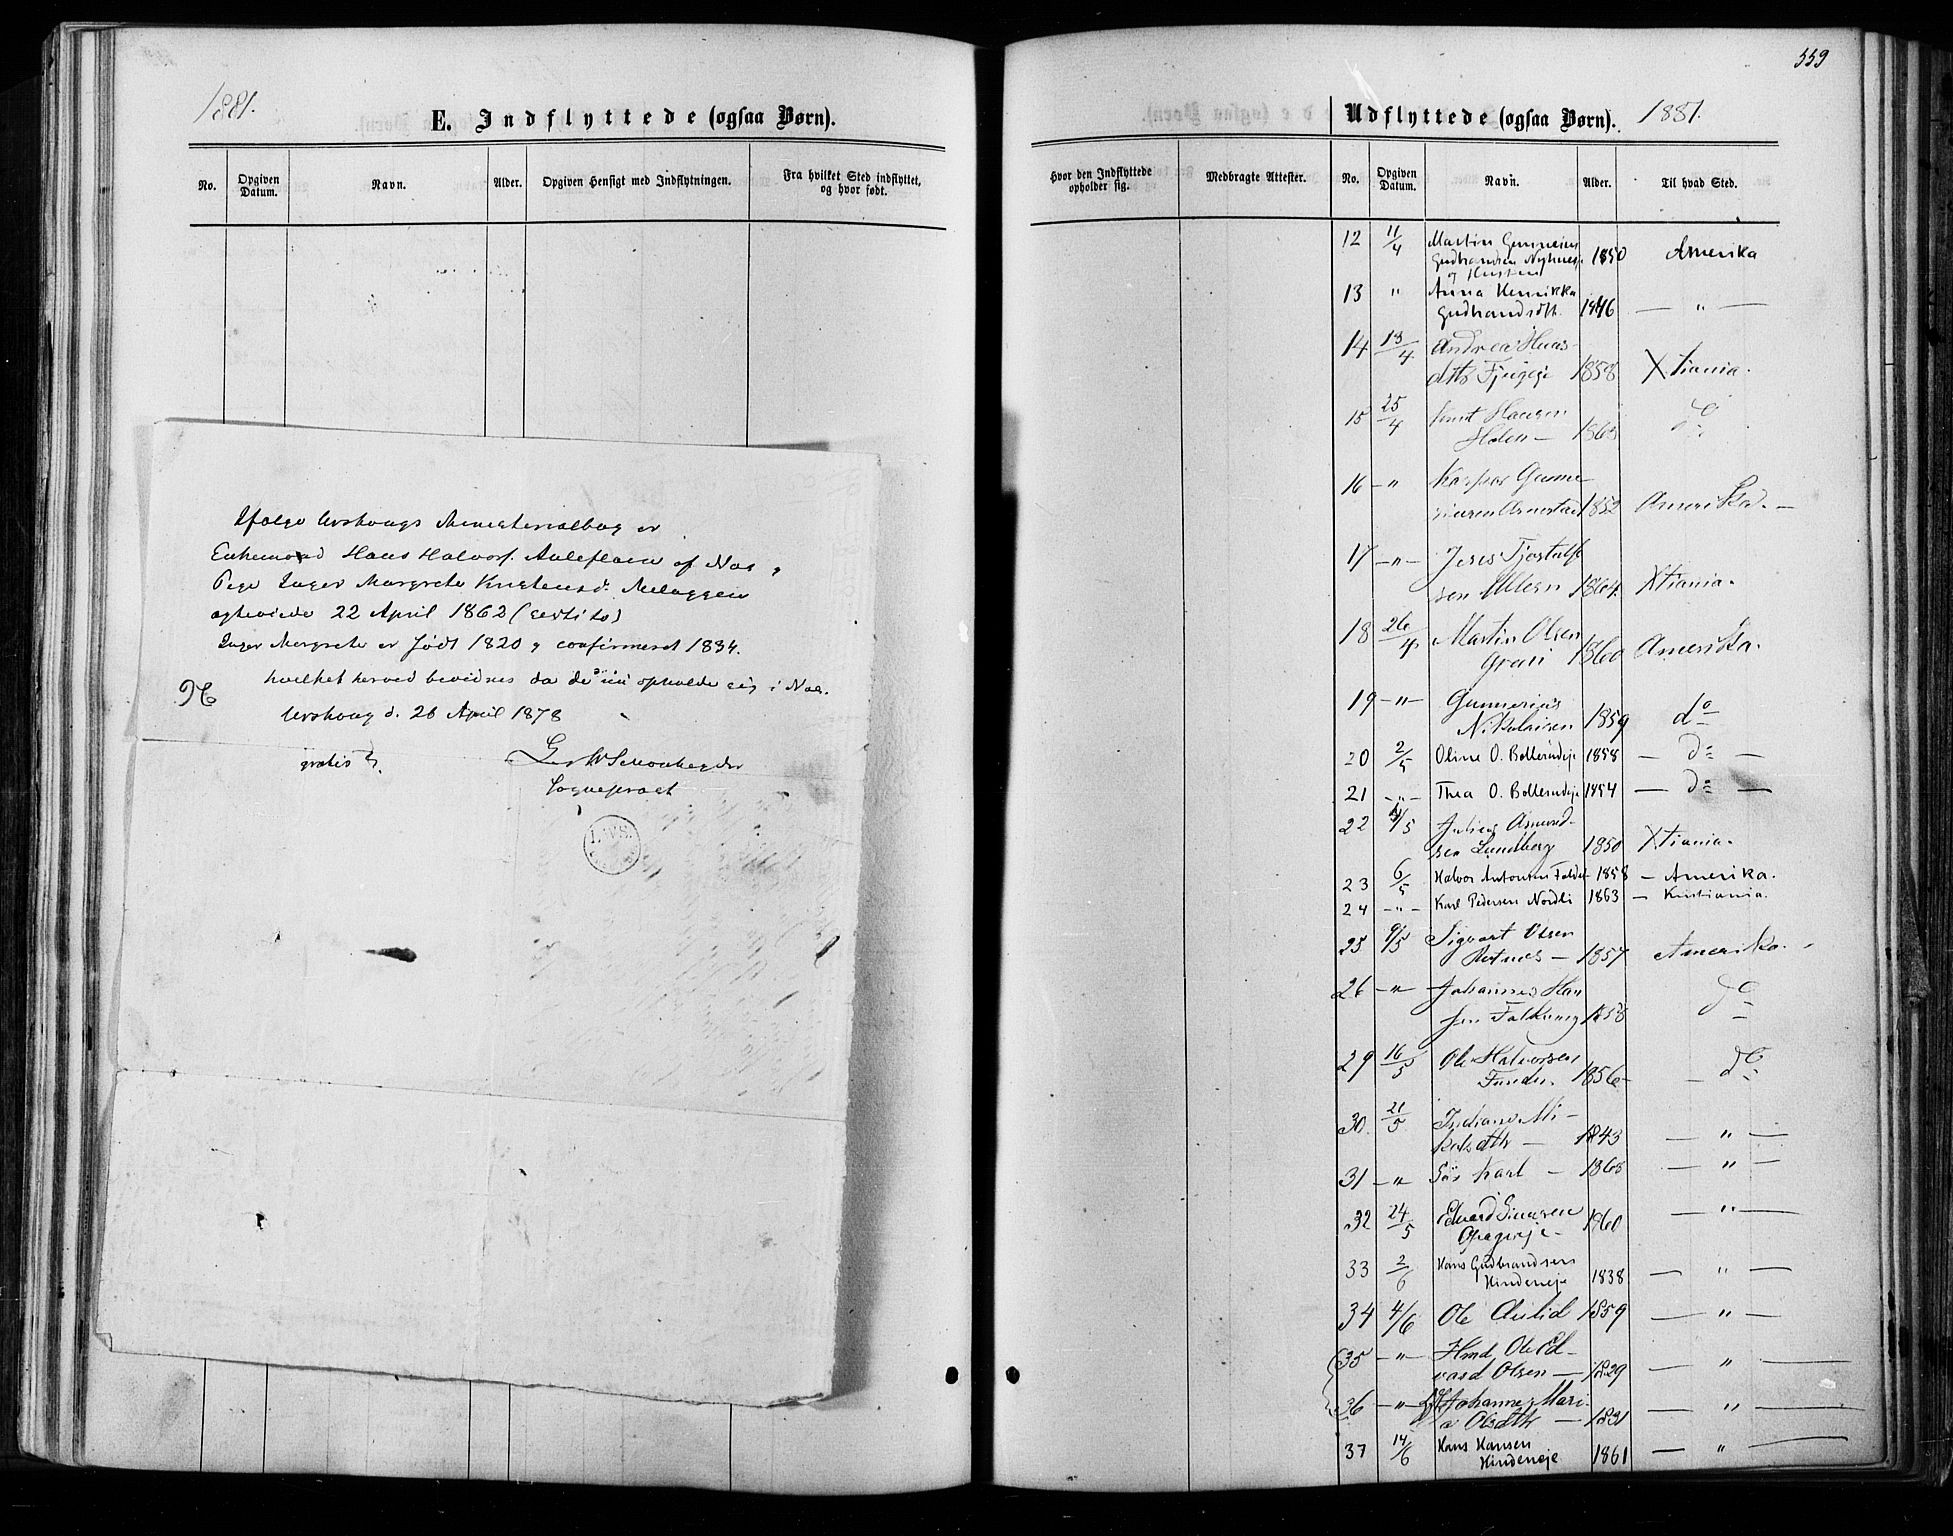 1881.
E. Indflyttede (ogsaa Børn).
No.
Opgiven Datum.
Navn.
Alder.
Opgiven Hensigt med Indflytningen.
Fra hvilket Sted indflyttet, og hvor født.
Ifølge Urskougs Ministerialbog er
Enkemand Hans Halvors. Auleflaen af Nes og
Pige Inger Margrete Kristensd:
22 April 1862
Inger Margrete er født 1820 og confirmeret 1834.
hvilket herved bevidnes da de nu opholde sig i Nes.
Urskoug d. 26 April 1878
gratis
Sognepræst
L.W.S.
559
Udflyttede (ogsaa Børn). 1881.
Hvor den Indflyttede opholder sig.
Medbragte Attester.
No.
Opgiven Datum.
Navn.
Alder.
Til hvad Sted.
12 11/4 Martin Gunerius
Gudbrandsen 1850 Amerika
og Hustru
13 " Anna Henrikka
Gudbrandsdtr. 1846 — " —
14 13/4 Andrea Hans-
dtr 1858 Xtiania.
15 25/4 Knut Hansen
Holen — 1863 do
16 — " Kaspar Gunne-
riusen Arnestad 1852 Amerika. —
17 — " — Jens Tjostolf-
sen 1864 Xtiania.
18 26/4 Martin Olsen
1860 Amerika.
19 — " — Gunnerius
Nikolaisen 1859 do
20 2/5 Oline O. Bollerudeje 1858 — do —
21 — " — Thea O. Bollerudeje 1854 — do —
22 4/5 Julius Amund-
sen Lundberg 1850 Xtiania.
23 6/5 Halvor Antonsen 1858 — Amerika.
24 — " — Karl Pedersen Nordli 1863 — Kristiania.
25 9/5 Sigvart Olsen
Rotnes — 1857 Amerika.
26 — " — Johannes Han-
sen 1858 do
29 16/5 Ole Halvorsen
Funder. 1856 — do
30. 21/5 Indiane Mi-
kelsdtr — 1843 — " —
31 — " Søn Karl — 1868 — " —
32 24/5 Edvard Simensen
1860 — " —
33 2/6 Hans Gudbrandsen
Hindeneje 1838 — " —
34 4/6 Ole Aulid 1859 — " —
35 — " — Hmd Ole Ed-
vard Olsen — 1829 — " —
36 — " — Johanne Mari-
a Olsdtr — 1831 — " —
37 14/6 Hans Hansen
Hindeneje 1861 — " —